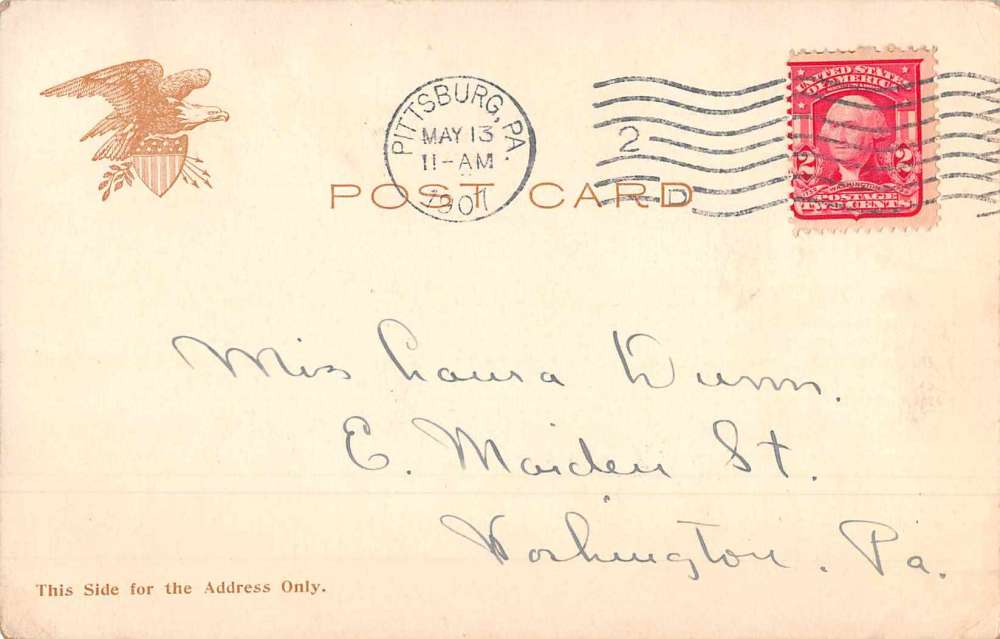 PITTSBURG, PA.
MAY 13
11-AM
1907
2
UNITED STATES
OF AMERICA
2 2
WASHINGTON
POSTAGE
TWO CENTS
POST CARD
Miss Laura Dunn.
E. Maiden St.
Washington. Pa.
This Side for the Address Only.